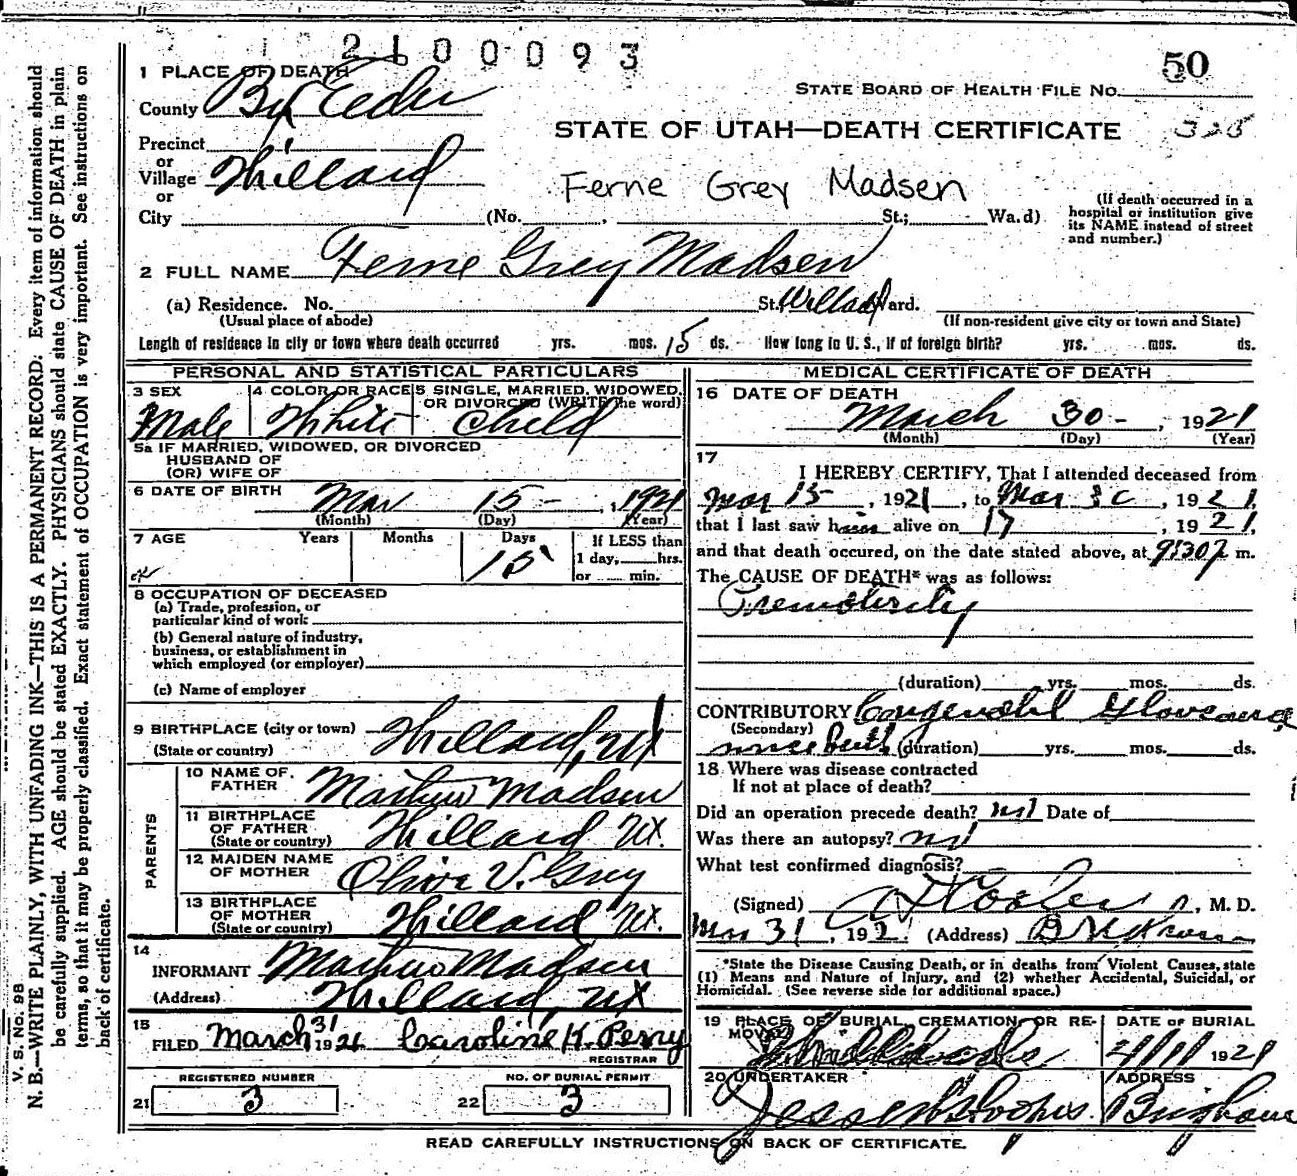 2100093
50
1 PLACE OF DEATH
STATE BOARD OF HEALTH FILE No.
County Bx Elder
STATE OF UTAH—DEATH CERTIFICATE 328
Precinct
or
Village Willard
or
Ferne Grey Madsen
(If death occurred in a
hospital or institution give
its NAME instead of street
and number.)
City (No. , St.; Wa.d)
2 FULL NAME Ferne Grey Madsen
(a) Residence. No. St. Willard Ward.
(Usual place of abode) (If non-resident give city or town and State)
Length of residence in city or town where death occurred yrs. mos. 15 ds. How long in U. S., if of foreign birth? yrs. mos. ds.
PERSONAL AND STATISTICAL PARTICULARS
3 SEX 4 COLOR OR RACE 5 SINGLE, MARRIED, WIDOWED,
OR DIVORCED (WRITE the word)
Male White Child
5a IF MARRIED, WIDOWED, OR DIVORCED
HUSBAND OF
(OR) WIFE OF
6 DATE OF BIRTH Mar 15 - , 1921
(Month) (Day) (Year)
7 AGE Years Months Days If LESS than
15 1 day, hrs.
or min.
8 OCCUPATION OF DECEASED
(a) Trade, profession, or
particular kind of work
(b) General nature of industry,
business, or establishment in
which employed (or employer)
(c) Name of employer
9 BIRTHPLACE (city or town) Willard, Ut
(State or country)
PARENTS
10 NAME OF
FATHER Martin Madsen
11 BIRTHPLACE
OF FATHER
(State or country) Willard Ut.
12 MAIDEN NAME
OF MOTHER Olive V. Grey
13 BIRTHPLACE
OF MOTHER
(State or country) Willard Ut.
14
INFORMANT Madsen
(Address) Willard, Ut
15
FILED March 31 1921 Caroline K. Perry
REGISTRAR
REGISTERED NUMBER NO. OF BURIAL PERMIT
21 3 22 3
MEDICAL CERTIFICATE OF DEATH
16 DATE OF DEATH
March 30 - , 1921
(Month) (Day) (Year)
17
I HEREBY CERTIFY, That I attended deceased from
Mar 15 , 1921, to Mar 30, 1921,
that I last saw him alive on 17 , 1921,
and that death occured, on the date stated above, at m.
The CAUSE OF DEATH* was as follows:
Prematurity
(duration) yrs. mos. ds.
CONTRIBUTORY Congenital
(Secondary)
since birth (duration) yrs. mos. ds.
18 Where was disease contracted
If not at place of death?
Did an operation precede death? no Date of
Was there an autopsy? no
What test confirmed diagnosis?
(Signed) , M. D.
Mar 31 , 192 (Address)
*State the Disease Causing Death, or in deaths from Violent Causes, state
(1) Means and Nature of Injury, and (2) whether Accidental, Suicidal, or
Homicidal. (See reverse side for additional space.)
19 PLACE OF BURIAL, CREMATION OR RE-
MOVAL
DATE OF BURIAL
1921
20 UNDERTAKER ADDRESS
READ CAREFULLY INSTRUCTIONS ON BACK OF CERTIFICATE.
V. S. No. 98
N. B.—WRITE PLAINLY, WITH UNFADING INK—THIS IS A PERMANENT RECORD. Every item of information should
be carefully supplied. AGE should be stated EXACTLY. PHYSICIANS should state CAUSE OF DEATH in plain
terms, so that it may be properly classified. Exact statement of OCCUPATION is very important. See instructions on
back of certificate.